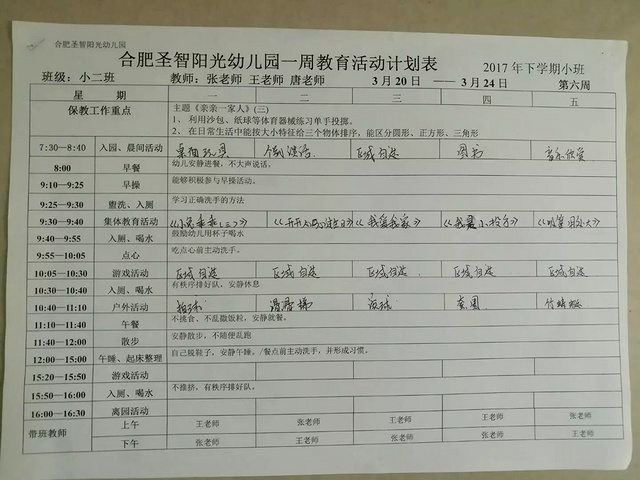 合肥圣智阳光幼儿园
合肥圣智阳光幼儿园一周教育活动计划表 2017 年下学期小班
班级：小二班 教师：张老师 王老师 唐老师 3 月 20 日 ——3 月 24 日 第六周
星 期 一 二 三 四 五
保教工作重点 主题《亲亲一家人》(三)
1、 利用沙包、纸球等体育器械练习单手投掷。
2、 在日常生活中能按大小特征给三个物体排序，能区分圆形、正方形、三角形
7:30—8:40 入园、晨间活动 桌面玩具 个别谈话 区域自选 图书 音乐欣赏
8:00 早餐 幼儿安静进餐，不大声说话。
9:10—9:25 早操 能够积极参与早操活动。
9:25—9:30 盥洗、入厕 学习正确洗手的方法
9:30—9:40 集体教育活动 《小兔乖乖(三)》 《我爱我家》
9:40—9:55 入厕、喝水 鼓励幼儿用杯子喝水
9:55—10:05 点心 吃点心前主动洗手。
10:05—10:30 游戏活动 区域自选 区域自选 区域自选 区域自选 区域自选
10:30—10:40 入厕、喝水 有秩序排好队，安静休息
10:40—11:10 户外活动 拍球 滑滑梯 竹蜻蜓
11:10—11:40 午餐 不挑食、不乱撒饭粒，安静就餐。
11:40—12:00 散步 安静散步，不随便乱跑
12:00—15:00 午睡、起床整理 自己脱鞋子，安静午睡。/餐点前主动洗手，并形成习惯。
15:20—15:50 游戏活动
15:50—16:00 入厕、喝水 不推挤，有秩序排好队。
16:00—16:30 离园活动
带班教师 上午 王老师 张老师 王老师 王老师 张老师
下午 张老师 王老师 张老师 张老师 王老师